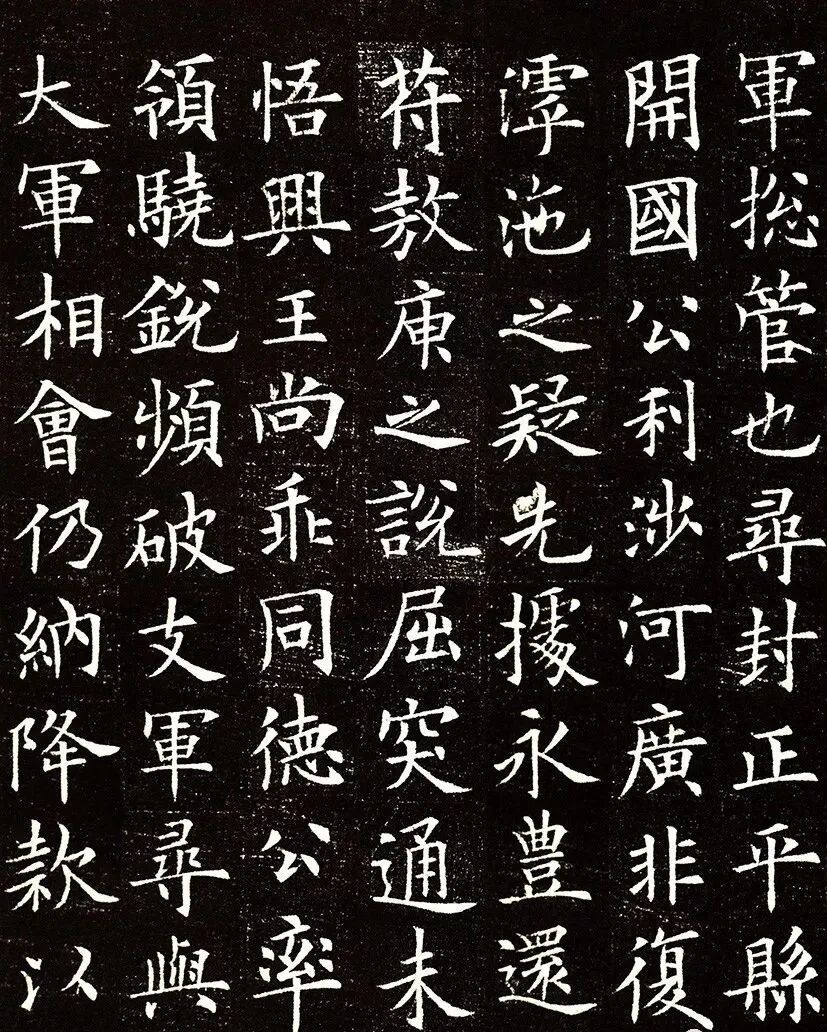 軍揔管也尋封正平縣
開國公利涉河廣非復
滹沲之疑先據永豊還
苻敖庾之說屈突通未
悟興王尚乖同德公率
領驍銳頻破支軍尋與
大軍相會仍納降款以